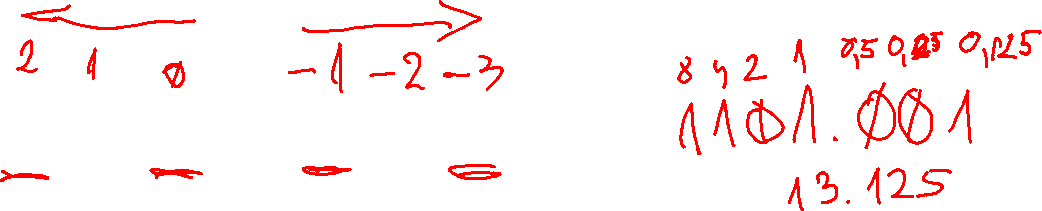 2 1 0 -1 -2 -3
8 4 2 1 0,5 0,25 0,125
1101.001
13.125